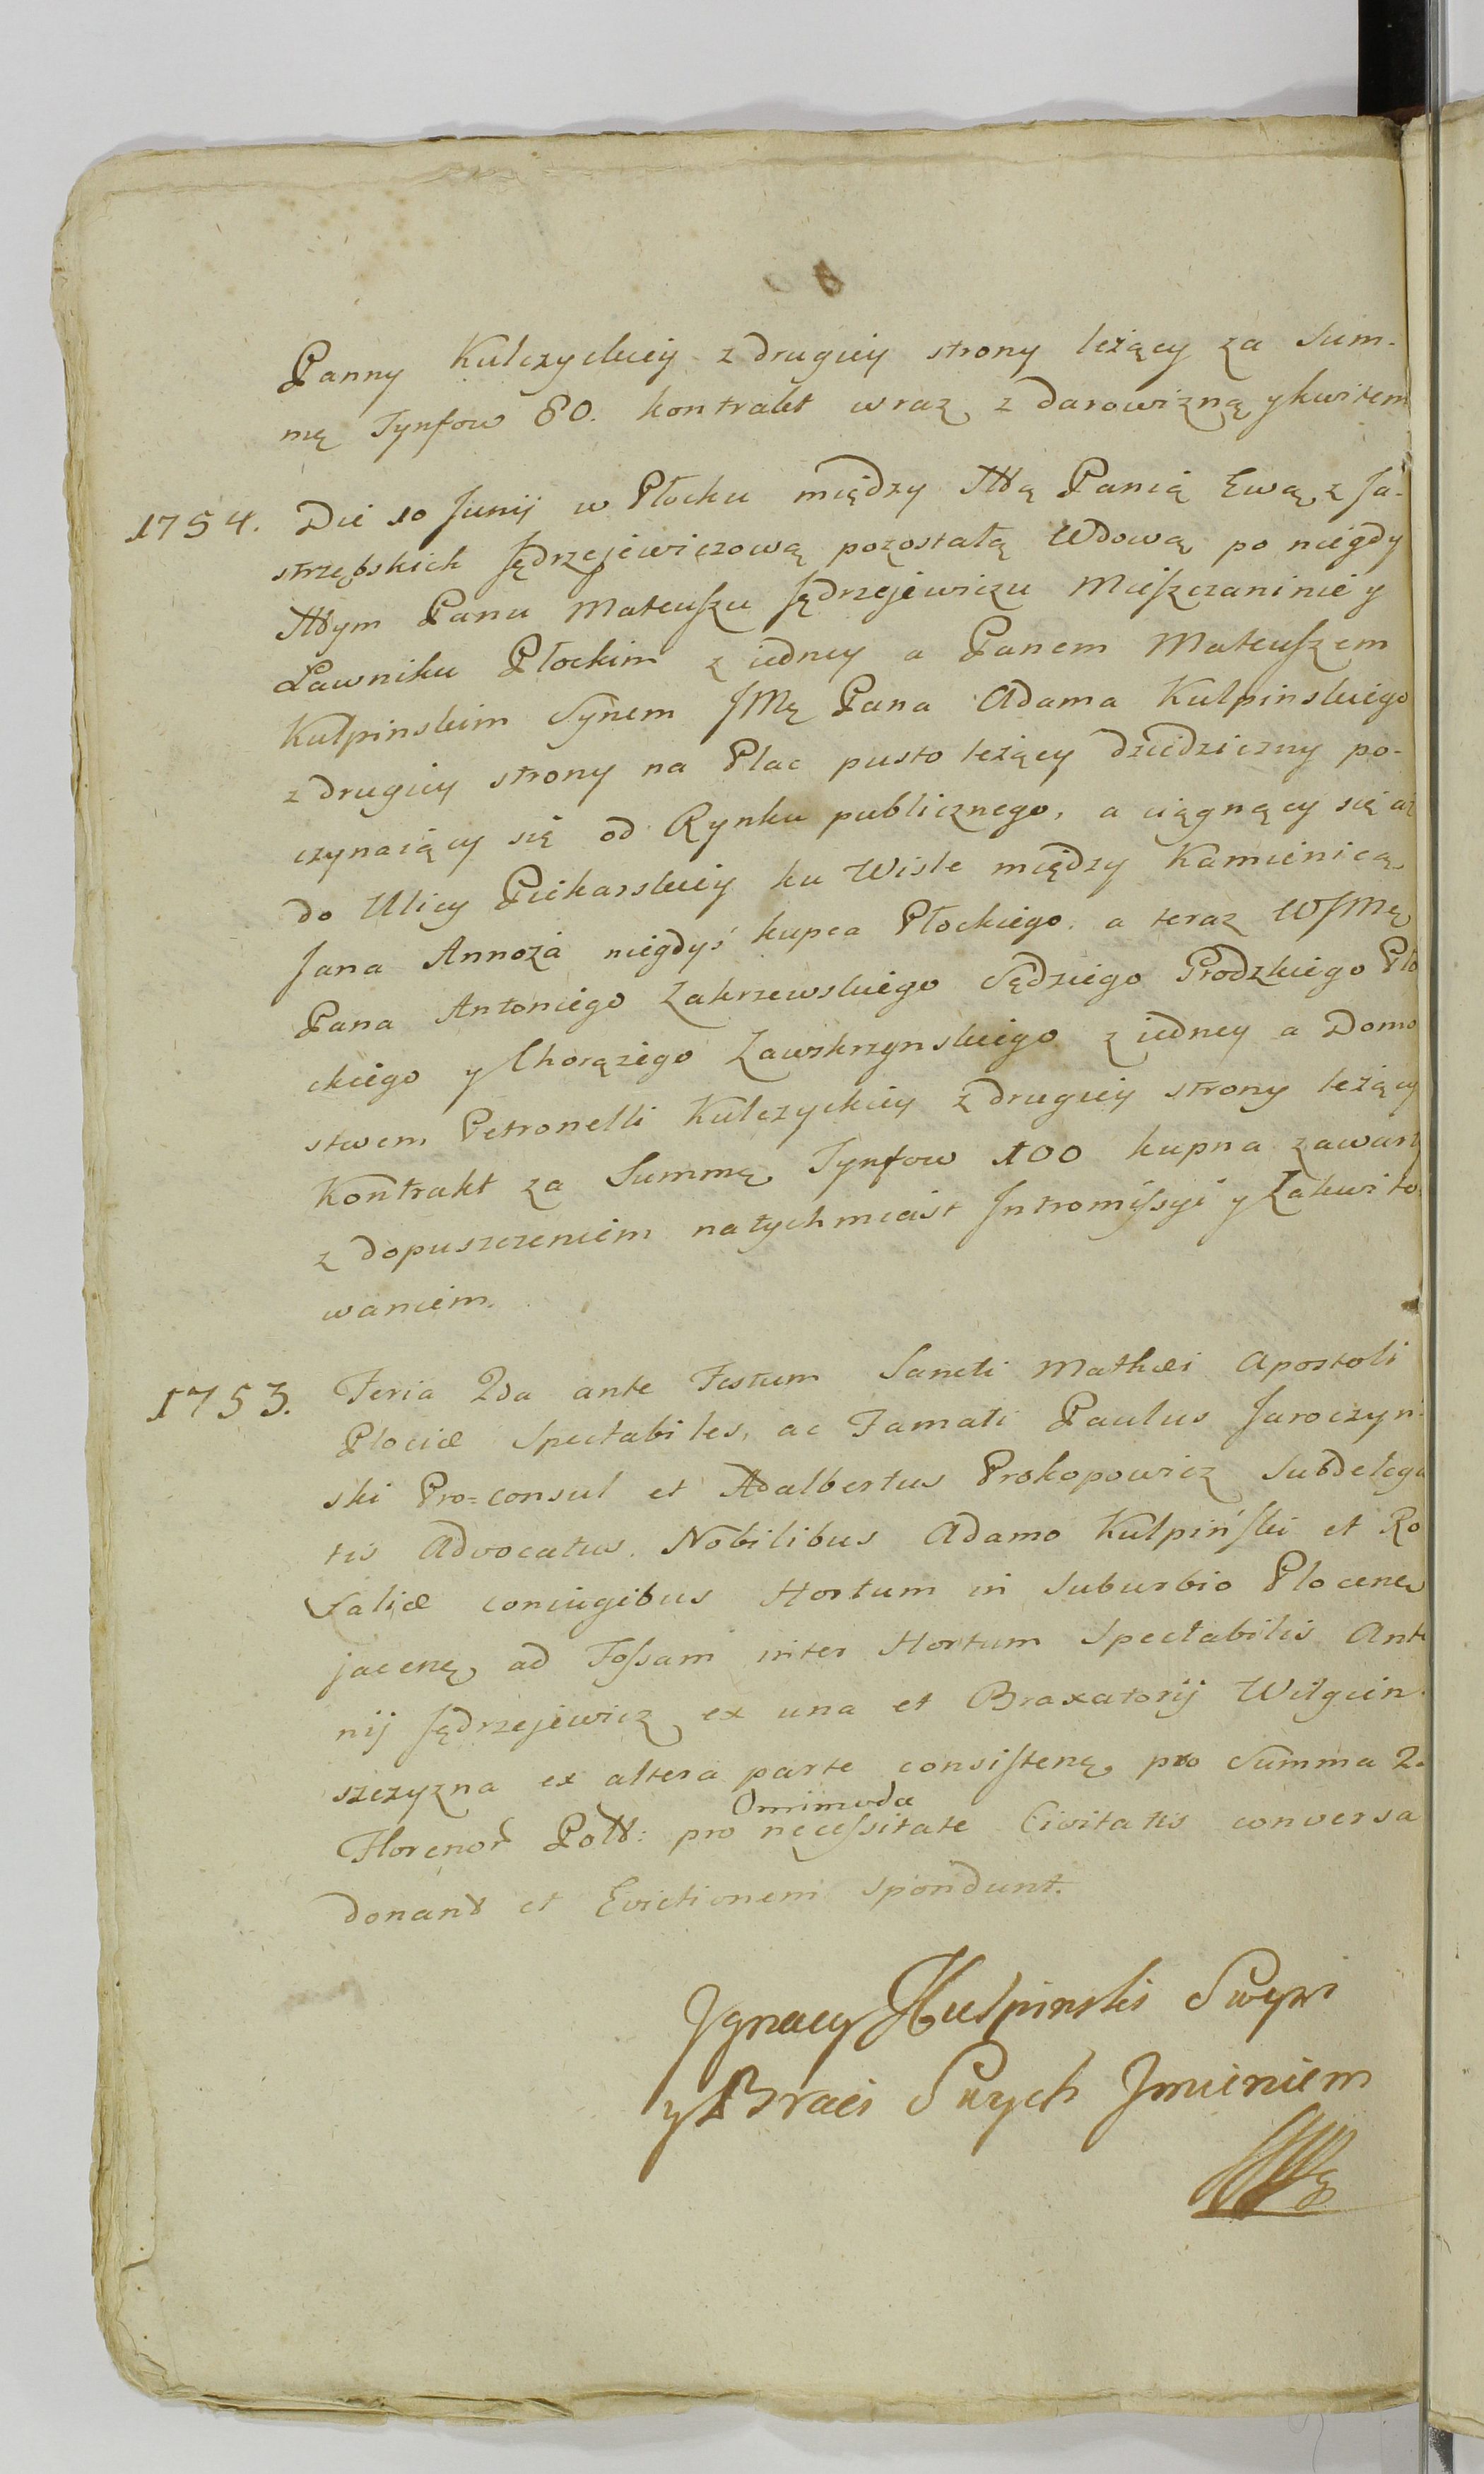 Panny Kulczyckiey z drugiey strony leżący za Sum-
mę Tynfow 80. kontrakt wraz z darowizną y kwitem
1754. Die 10 Junij w Płocku między Sttą Panią Ewą z Ja-
strzębskich Jędrzejewiczową pozostałą Wdową po niegdy
Sttym Panu Mateuszu Jędrzejewiczu Mieszczaninie y
Ławniku Płockim z iedney a Panem Mateuszem
Kulpinskim Synem JMę Pana Adama Kulpinskiego
z drugiey strony na Plac pusto leżący dziedziczny po-
czynaiący się od Rynku publicznego, a ciągnący się aż
do Ulicy Piekarskiey ku Wiśle między Kamienicą
Jana Annoza niegdyś kupca Płockiego. a teraz WJMę
Pana Antoniego Zakrzewskiego Sędziego Grodzkiego Pło
ckiego y Chorążego Zawskrzynskiego z iedney a Domo
stwem Petronelli Kulczyckiey z drugiey strony leżący
Kontrakt za Summę Tynfow 100 kupna zawarty
z dopuszczeniem natychmiast Intromissyi y Zakwito-
waniem.
1753. Feria 2da ante Festum Sancti Mathæi Apostoli
Plociæ Spectabiles, ac Famati Paulus Jaroczyn-
ski Pro=consul et Adalbertus Prokopowicz Subdelega
tis Advocatus. Nobilibus Adamo Kulpiński et Ro
saliæ coniugibus Hortum in Suburbio Plocene
jacenę ad Fossam inter Hortum Spectabilis Anto
nij Jędrzejewicz ex una et Braxatorij Wilgien-
szczyzna ex altera parte consistenę pro Summa 2
Omimoda
Florenor Poll: pro necessitate Civitatis conversa
donant et Evictionem spondunt.
Jgnacy Kulpinski Swym
y Braci Swych Jmieniem